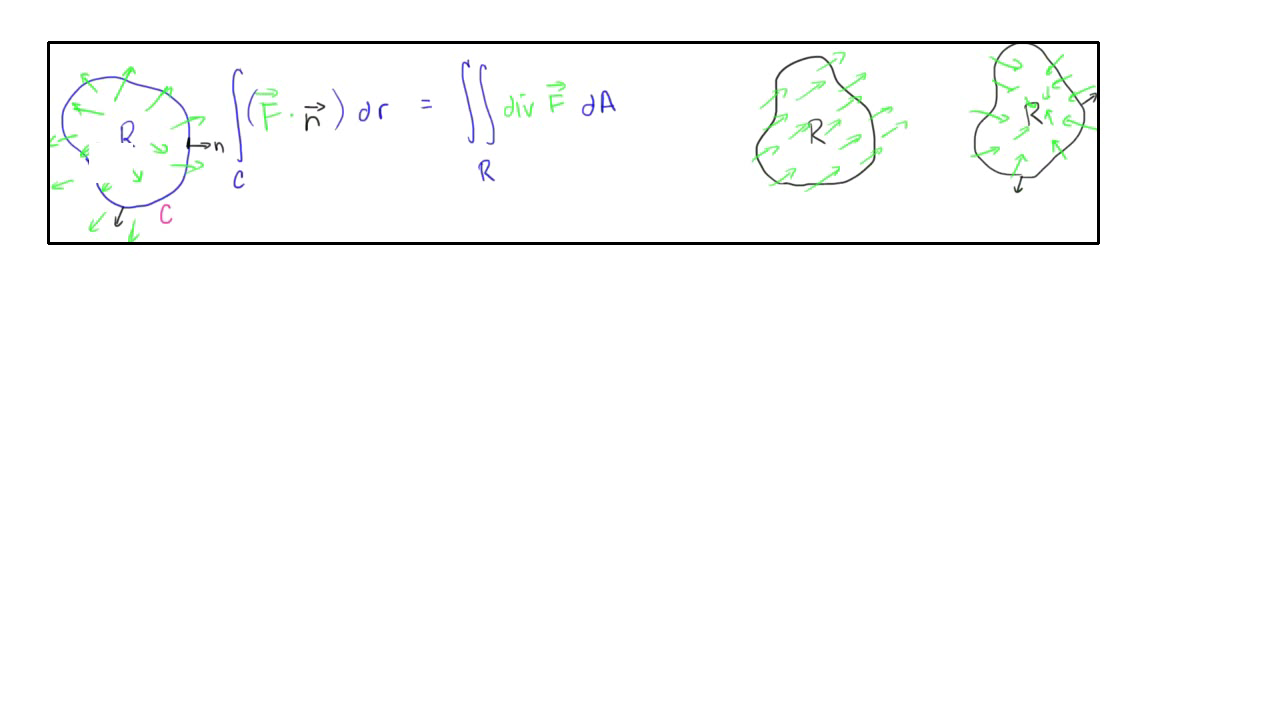 R. n C
∫_C (F⃗ · n⃗) dr = ∬_R div F⃗ dA
R
R